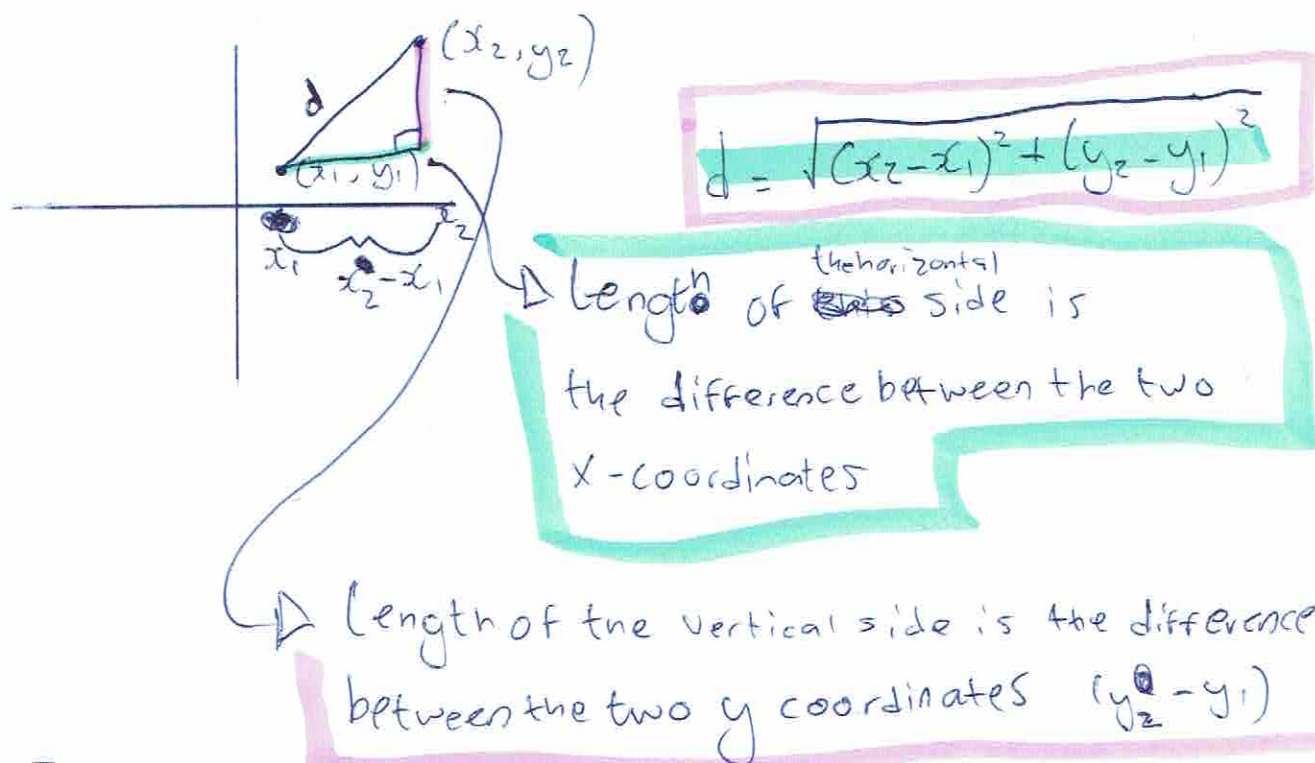 (x₂, y₂)
d
(x₁, y₁)
x₁
x₂
x₂-x₁
d = √(x₂-x₁)² + (y₂-y₁)²
the horizontal
Length of side is
the difference between the two
x-coordinates
Length of the vertical side is the difference
between the two y coordinates (y₂-y₁)